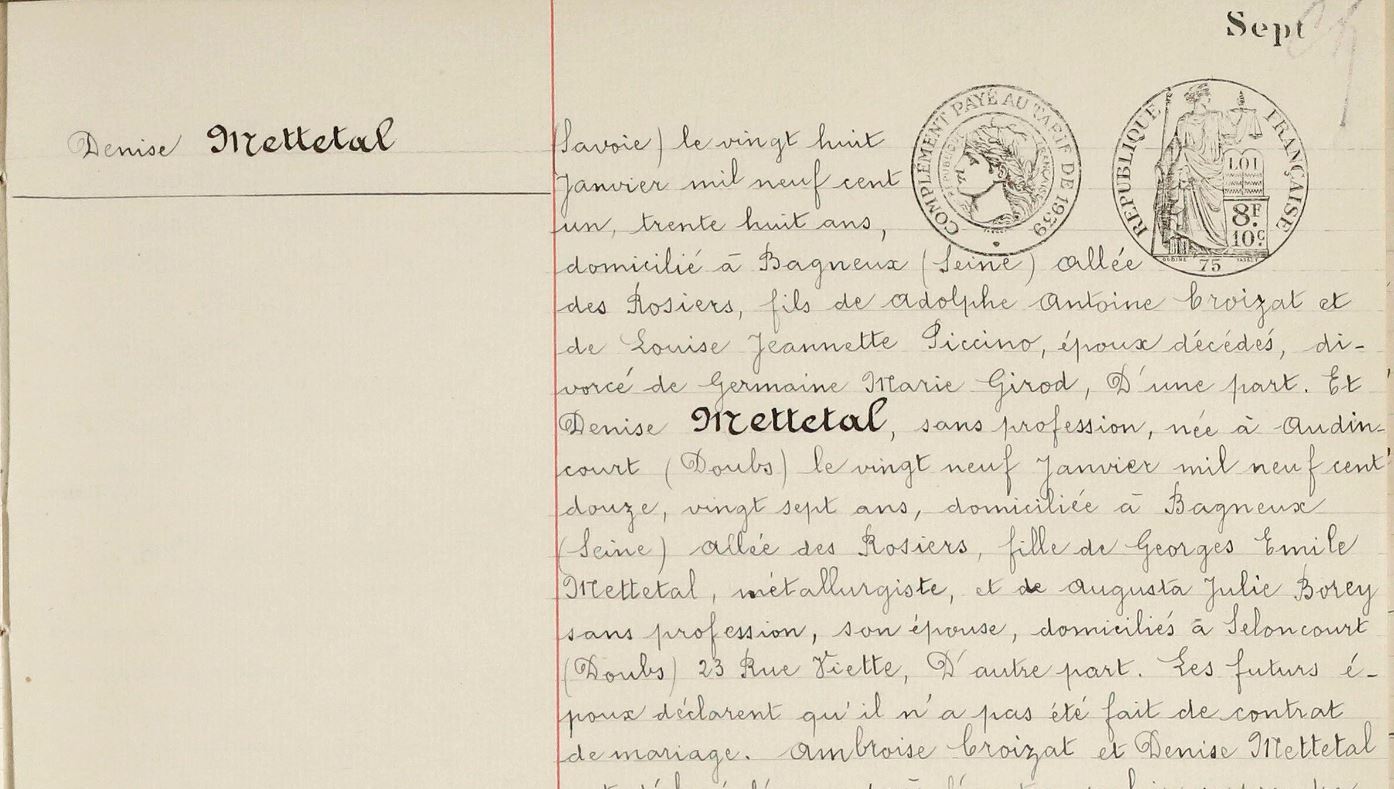 Sept
COMPLÉMENT PAYÉ AU TARIF DE 1939
RÉPUBLIQUE FRANÇAISE
LOI
8F
10c
75
Denise Mettetal
(Savoie) le vingt huit
Janvier mil neuf cent
un, trente huit ans,
domicilié à Bagneux (Seine) allée
des Rosiers, fils de Adolphe Antoine Croizat et
de Louise Jeannette Piccino, époux décédés, di-
vorcé de Germaine Marie Girod, D'une part. Et
Denise Mettetal, sans profession, née à Audin-
court (Doubs) le vingt neuf Janvier mil neuf cent
douze, vingt sept ans, domiciliée à Bagneux
(Seine) allée des Rosiers, fille de Georges Emile
Mettetal, métallurgiste, et de Augusta Julie Borey
sans profession, son épouse, domiciliés à Seloncourt
(Doubs) 23 Rue Viette, D'autre part. Les futurs é-
poux déclarent qu'il n'a pas été fait de contrat
de mariage. Ambroise Croizat et Denise Mettetal